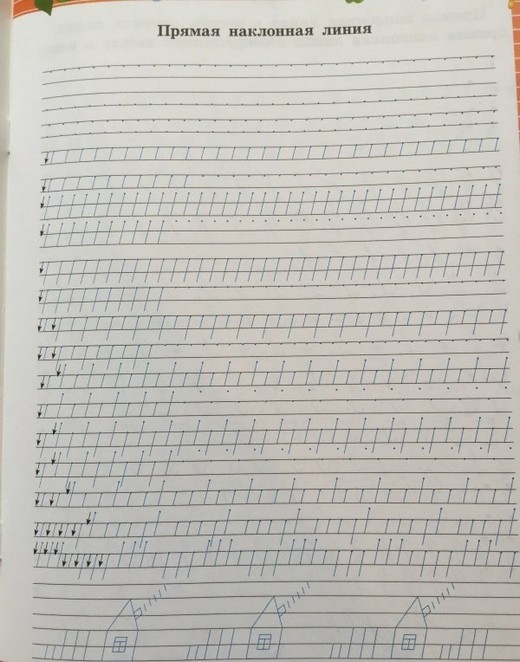 Прямая наклонная линия